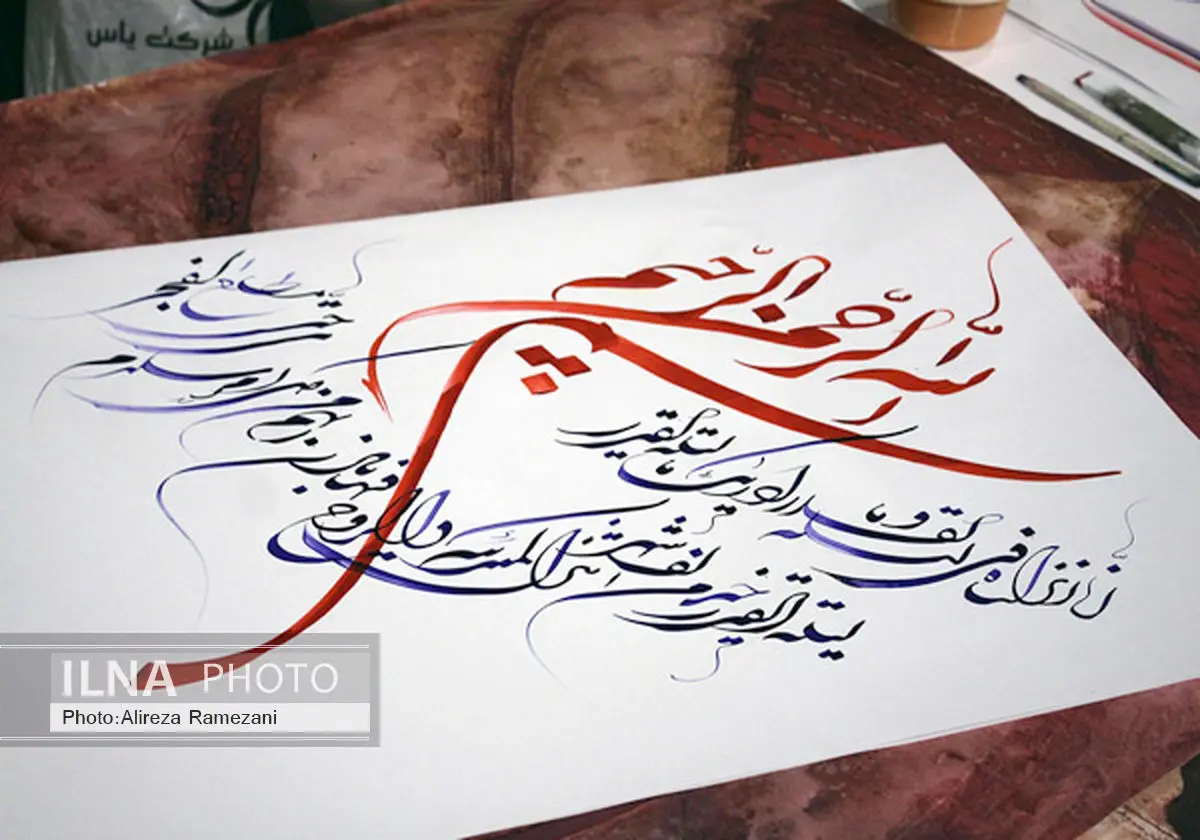 شرکت یاس
بسم الله الرحمن الرحیم
انا انزلناه فی لیلة القدر و ما
ادریک ما لیلة القدر
لیلة القدر خیر من
الف شهر تنزل الملئکة و الروح
فیها باذن
ربهم من کل امر سلام
هی حتی مطلع الفجر
ILNA PHOTO
Photo:Alireza Ramezani